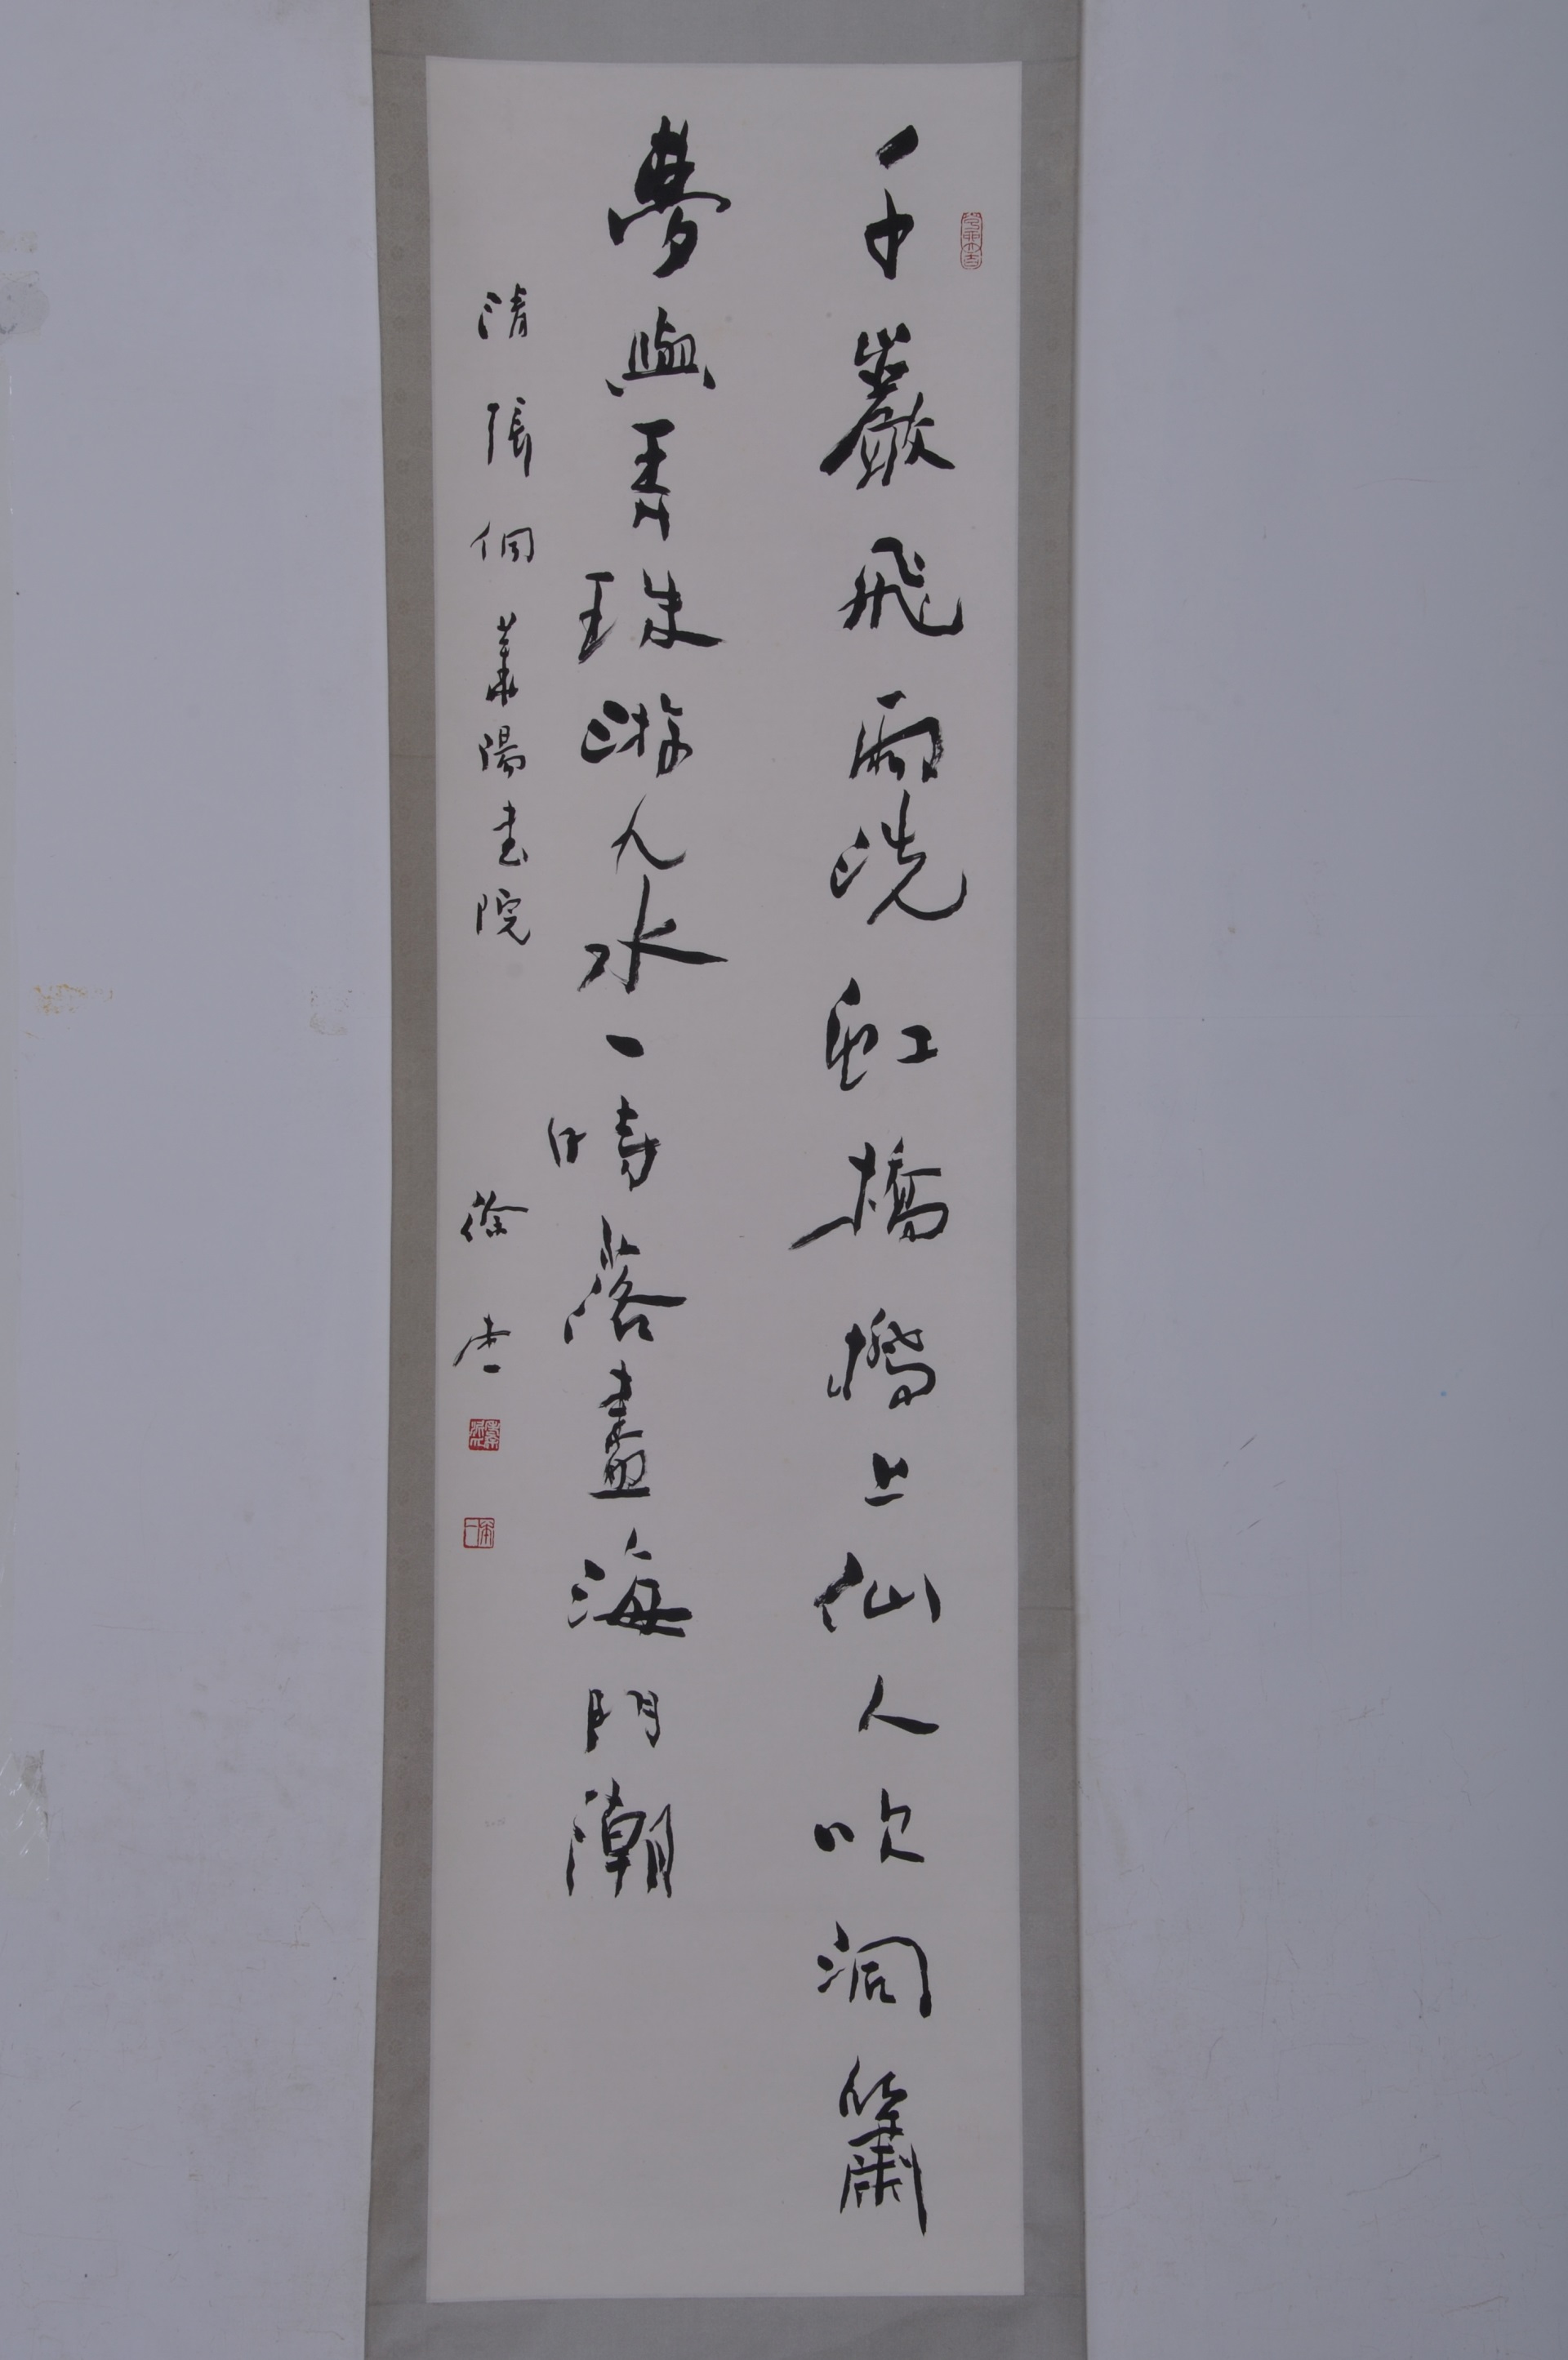 千巖飛雨洗虹橋橋上仙人吹洞簫
夢與青珠游九水一時落盡海門潮
清張侗華陽書院
徐